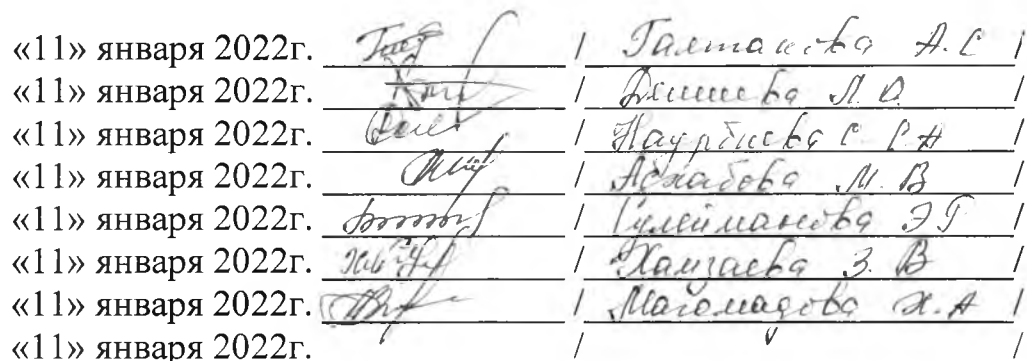 «11» января 2022г. / Галтакова А.С /
«11» января 2022г. / Л.О. /
«11» января 2022г. / Наурбиева С С-А /
«11» января 2022г. / Асхабова М. В /
«11» января 2022г. / Сулейманова Э Г /
«11» января 2022г. / Хамзаева З. В /
«11» января 2022г. / Магомадова Х.А /
«11» января 2022г. / /